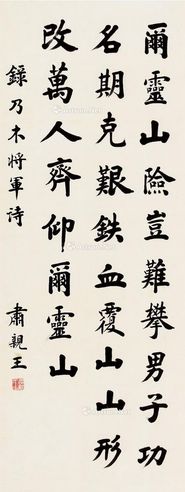 爾靈山險豈難攀男子功
名期克艱鉄血覆山山形
改萬人齊仰爾靈山
錄乃木將軍诗
肅親王